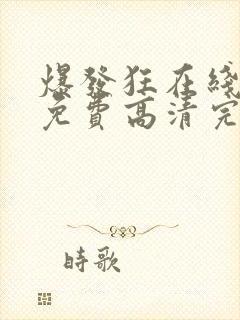 爆發狂在綫
免費高清完
時歌